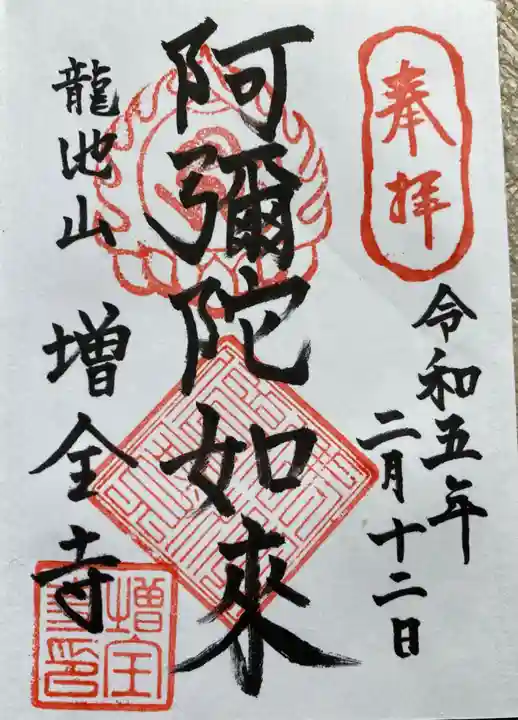 奉拝
令和五年
二月十二日
阿彌陀如來
龍池山
増全寺
増全寺印